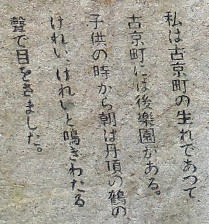 私は古京町の生れであつて
古京町には後楽園がある。
子供の時から朝は丹頂の鶴の
けれい、けれいと鳴きわたる
聲で目をさました。